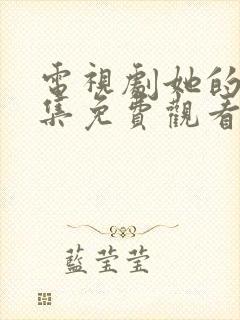 電視劇她的
集免費觀看
藍瑩瑩